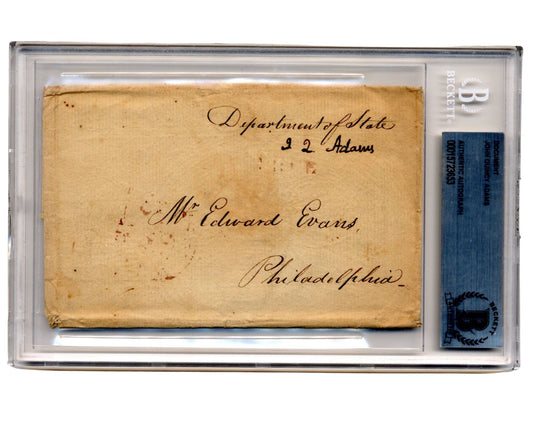 Department of State
J Q Adams
FREE
Mr Edward Evans,
Philadelphia
BECKETT
B
DOCUMENT
JOHN QUINCY ADAMS
AUTHENTIC AUTOGRAPH
00015723653
BECKETT
B